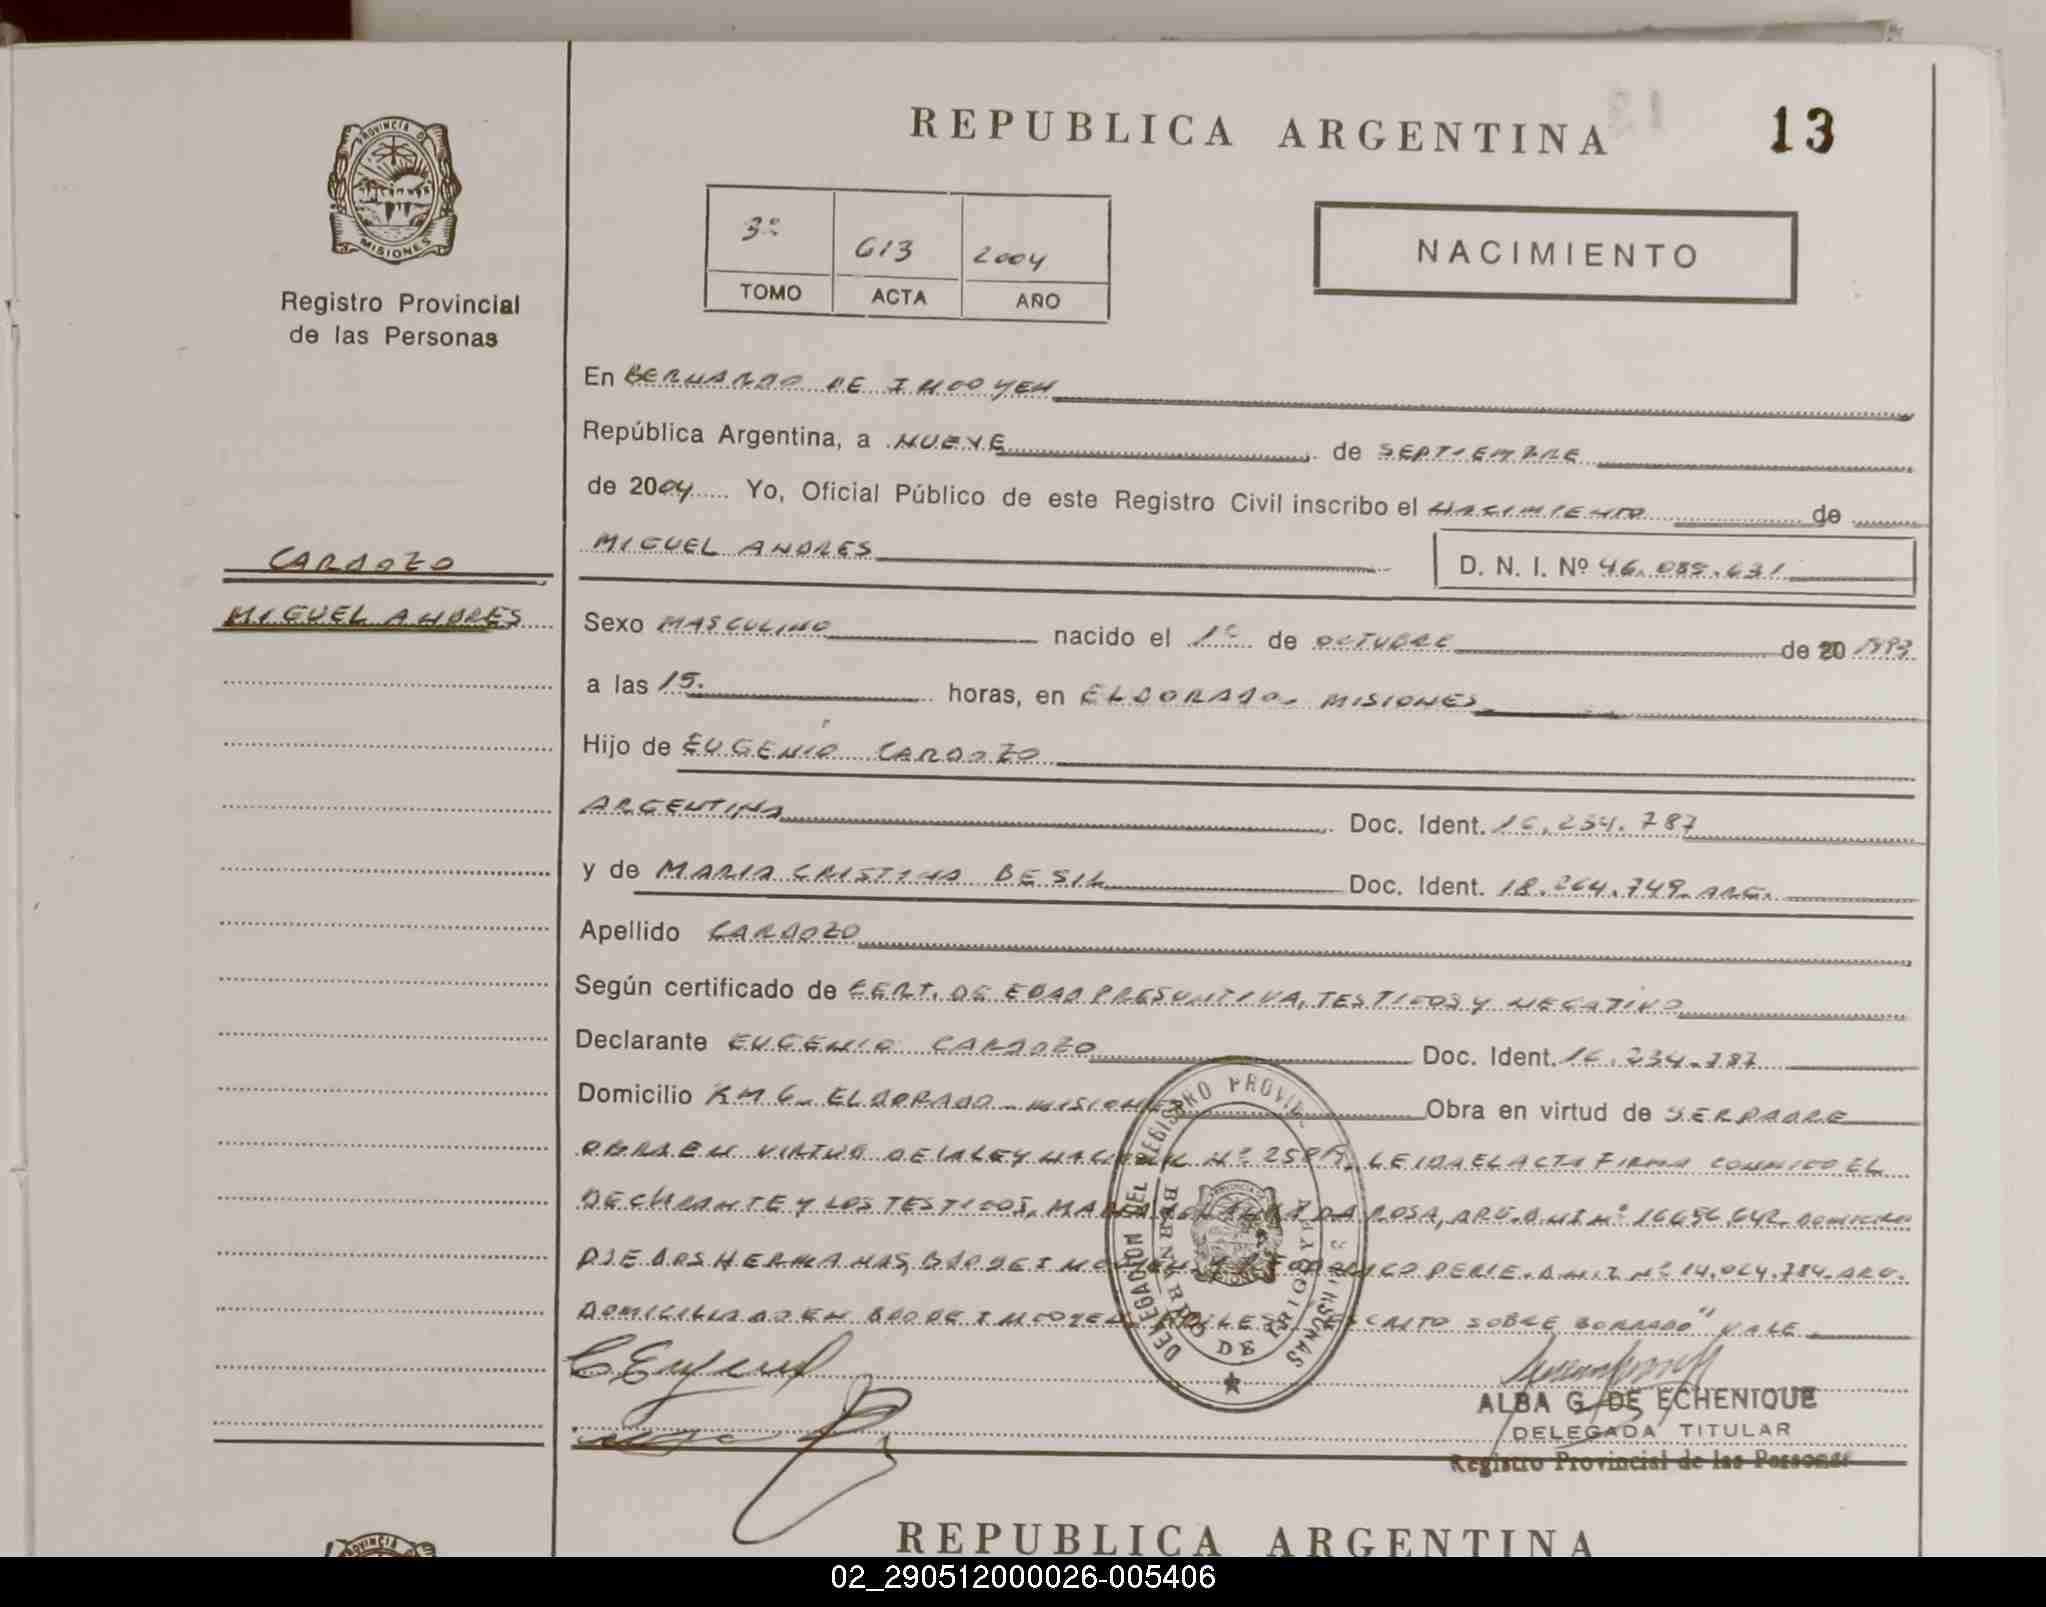 PROVINCIA DE
MISIONES
Registro Provincial
de las Personas
CARDOZO
MIGUEL ANDRES
REPUBLICA ARGENTINA
13
3º 613 2004
TOMO ACTA AÑO
NACIMIENTO
En BERNARDO DE IRIGOYEN
República Argentina, a NUEVE de SEPTIEMBRE
de 2004 Yo, Oficial Público de este Registro Civil inscribo el NACIMIENTO de
MIGUEL ANDRES D. N. I. Nº 46.089.631
Sexo MASCULINO nacido el 1º de OCTUBRE de 20 1993
a las 15. horas, en ELDORADO- MISIONES
Hijo de EUGENIO CARDOZO
ARGENTINA Doc. Ident. 16.234.787
y de MARIA CRISTINA BESIL Doc. Ident. 18.264.749- ARG.
Apellido CARDOZO
Según certificado de CERT. DE EDAD PRESUNTIVA, TESTIGOS Y NEGATIVO
Declarante EUGENIO CARDOZO Doc. Ident. 16.234.787
Domicilio KM 6- ELDORADO- MISIONES Obra en virtud de SER PADRE
OBRA EN VIRTUD DE LA LEY NACIONAL Nº LEIDA EL ACTA FIRMA CONMIGO EL
DECLARANTE Y LOS TESTIGOS, DA ROSA, ARG. D.N.I Nº 16696642- DOMICILIO
DOS HERMANAS, BDO DE IRIGOYEN- D.N.I. Nº 14.064.784- ARG.
DOMICILIADO EN BDO DE IRIGOYEN- ESCRITO SOBRE BORRADO" VALE
DELEGACION DEL REGISTRO PROVINCIAL DE LAS PERSONAS
BERNARDO DE IRIGOYEN
ALBA G. DE ECHENIQUE
DELEGADA TITULAR
Registro Provincial de las Personas
REPUBLICA ARGENTINA
02_290512000026-005406